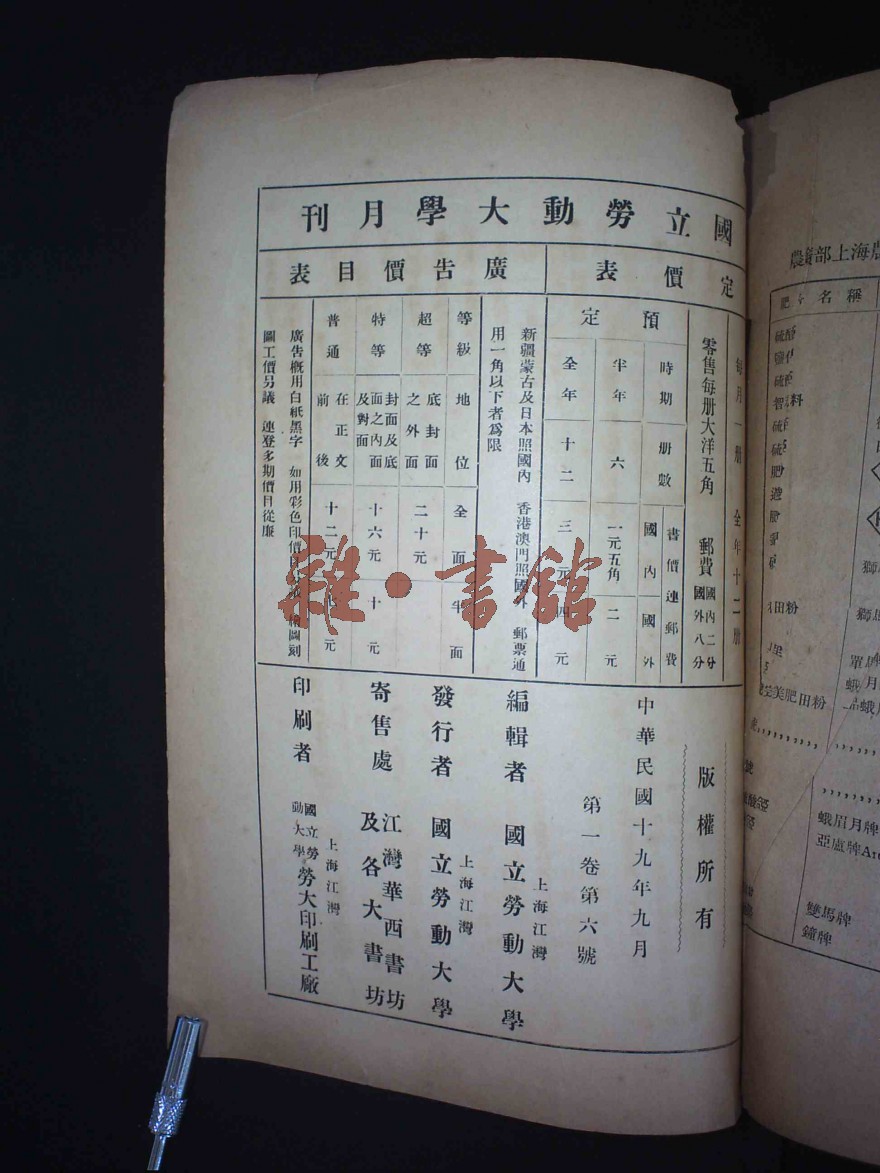 國立勞動大學月刊
定價表
每月一册 全年十二册
零售每册大洋五角 郵費 國內二分 國外八分
預定
時期 册數 書價連郵費
國內 國外
半年 六 一元五角 二元
全年 十二 三元 四元
新疆蒙古及日本照國內 香港澳門照國外 郵票通
用一角以下者爲限
廣告價目表
等級 地位 全面 半面
超等 底封面之外面 二十元
特等 封面及底面之內面及對面 十六元 十元
普通 在正文前後 十二元
廣告概用白紙黑字 如用彩色印價
圖工價另議 連登多期價目從廉
版權所有
中華民國十九年九月
第一卷第六號
編輯者 上海江灣 國立勞動大學
發行者 上海江灣 國立勞動大學
寄售處 江灣華西書坊
及各大書坊
印刷者 上海江灣 國立勞動大學 勞大印刷工廠
雜·書館
部上海
名稱
田粉
美肥田粉
蛾眉月牌
雙馬牌
鐘牌